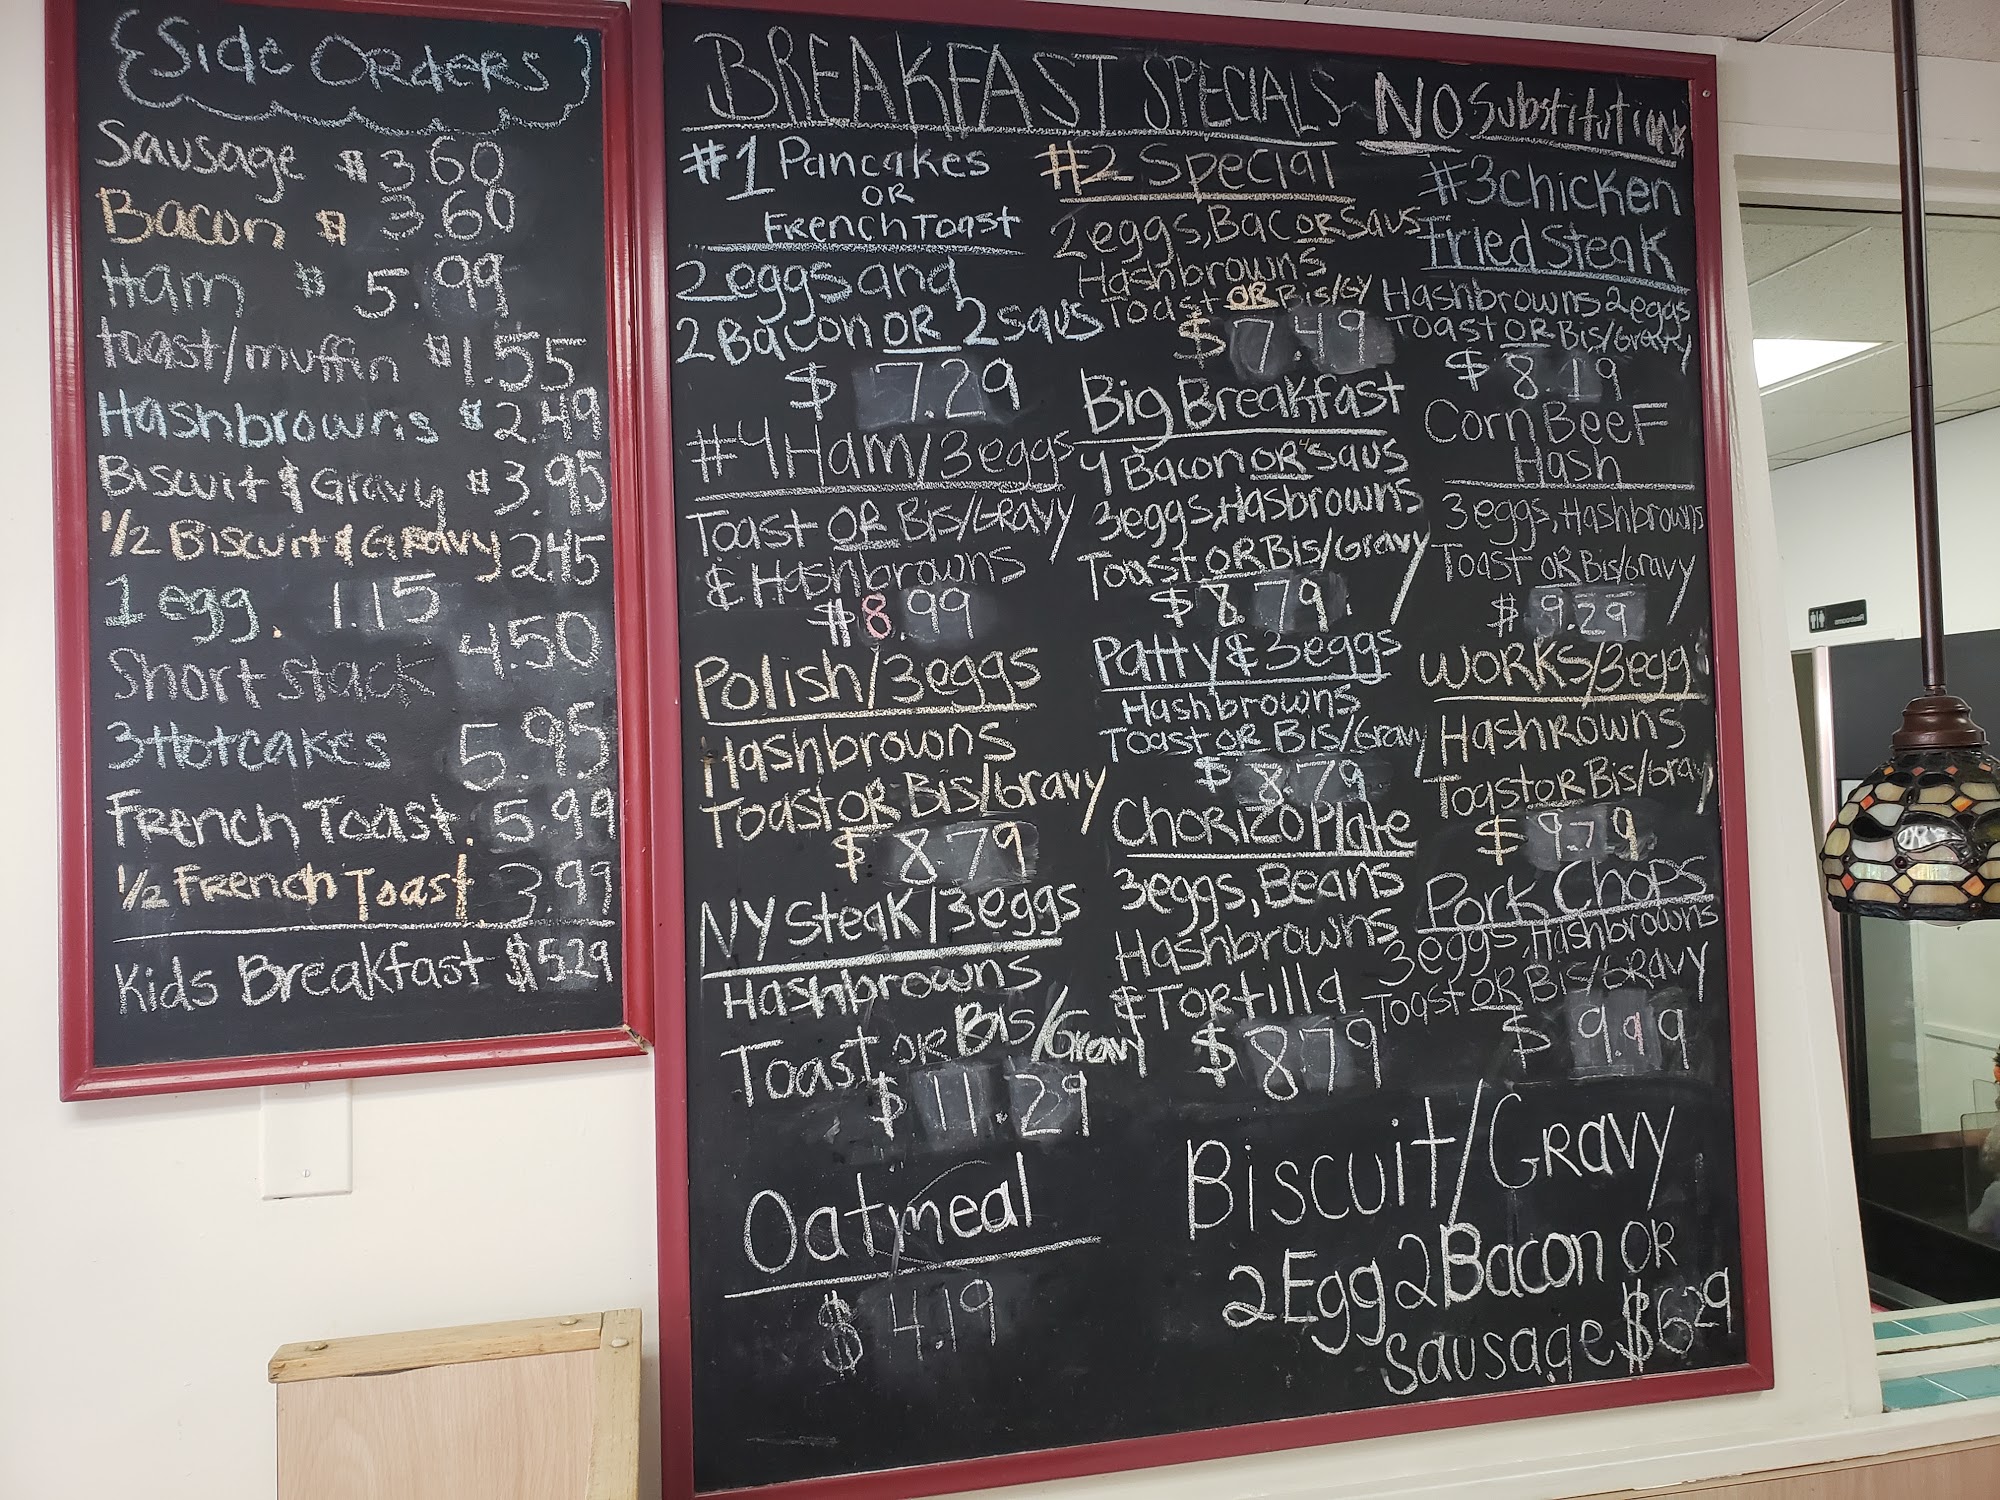 Side Orders
Sausage $3.60
Bacon $ 3.60
Ham $ 5.99
toast/muffin $1.55
Hashbrowns $2.49
Biscuit & Gravy $3.95
1/2 Biscuit & Gravy 2.45
1 egg. 1.15
Short stack 4.50
3 Hotcakes 5.95
French Toast. 5.99
1/2 French Toast. 3.99
Kids Breakfast $5.29
BREAKFAST SPECIALS NO Substitutions
#1 Pancakes
OR
French Toast
2 eggs and
2 Bacon OR 2 saus
$ 7.29
#4 Ham/3eggs
Toast OR Bis/Gravy
& Hashbrowns
$8.99
Polish/3eggs
Hashbrowns
Toast OR Bis/Gravy
$ 8.79
NY Steak/3eggs
Hashbrowns
Toast OR Bis/Gravy
$ 11.29
Oatmeal
$ 4.19
#2 Special
2 eggs, Bac OR Saus
Hashbrowns
Toast OR Bis/Gy
$ 7.49
Big Breakfast
4 Bacon OR 4 saus
3eggs, Hasbrowns
Toast OR Bis/Gravy
$ 8.79
Patty & 3eggs
Hashbrowns
Toast OR Bis/Gravy
$ 8.79
Chorizo Plate
3eggs, Beans
Hashbrowns
& Tortilla
$ 8.79
#3 chicken
fried Steak
Hashbrowns 2eggs
Toast OR Bis/Gravy
$ 8.19
Corn Beef
Hash
3eggs, Hashbrowns
Toast OR Bis/Gravy
$ 9.29
WORKS/3egg
Hashrowns
Toast OR Bis/Gravy
$ 9.79
Pork Chops
3eggs, Hashbrowns
Toast OR Bis/Gravy
$ 9.99
Biscuit/Gravy
2 Egg 2 Bacon OR
Sausage $6.29